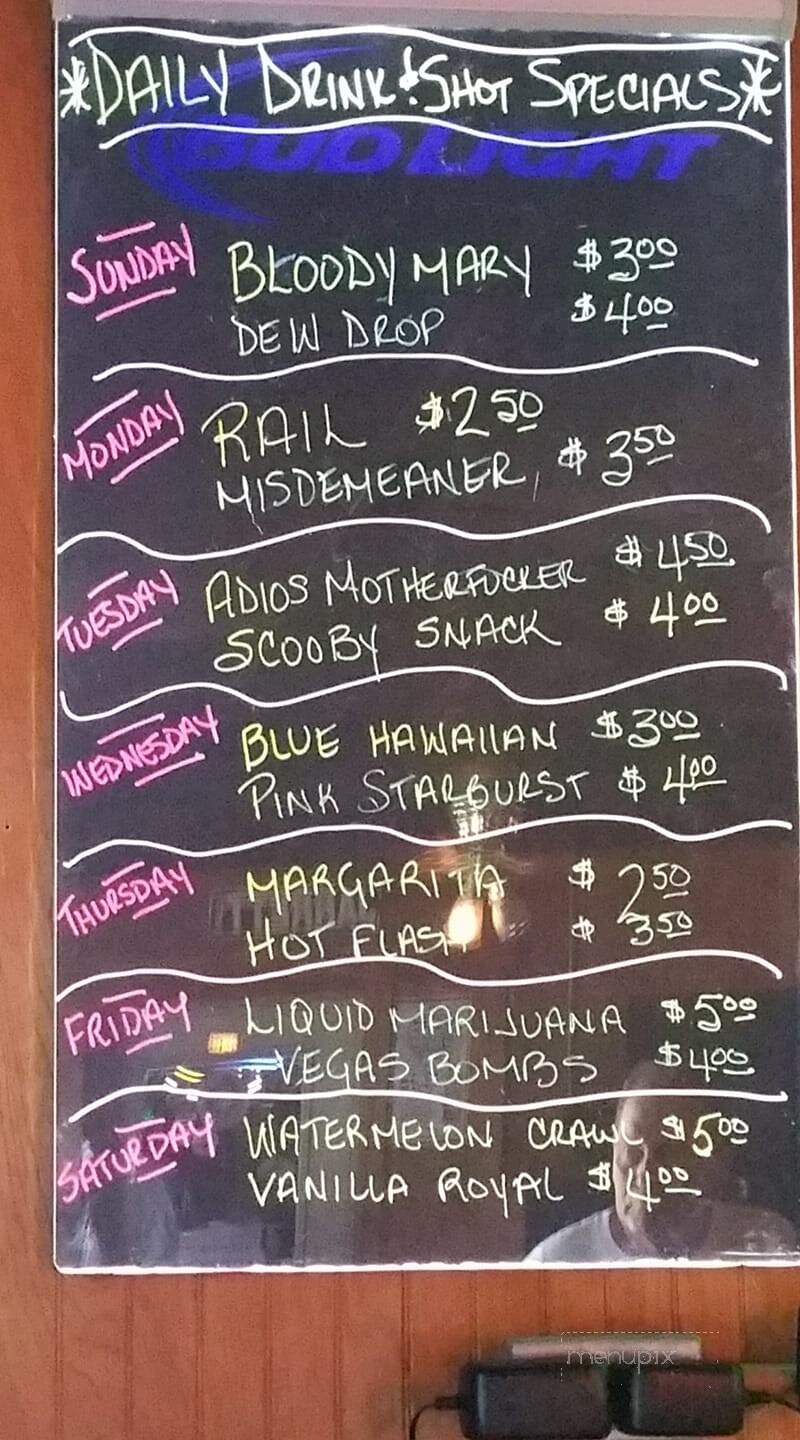 *DAILY DRINK & SHOT SPECIALS*
BUD LIGHT
SUNDAY BLOODY MARY $3.00
DEW DROP $4.00
MONDAY RAIL $2.50
MISDEMEANER $3.50
TUESDAY ADIOS MOTHERFUCKER $4.50
SCOOBY SNACK $4.00
WEDNESDAY BLUE HAWAIIAN $3.00
PINK STARBURST $4.00
THURSDAY MARGARITA $2.50
HOT FLASH $3.50
FRIDAY LIQUID MARIJUANA $5.00
VEGAS BOMBS $4.00
SATURDAY WATERMELON CRAWL $5.00
VANILLA ROYAL $4.00
menupix